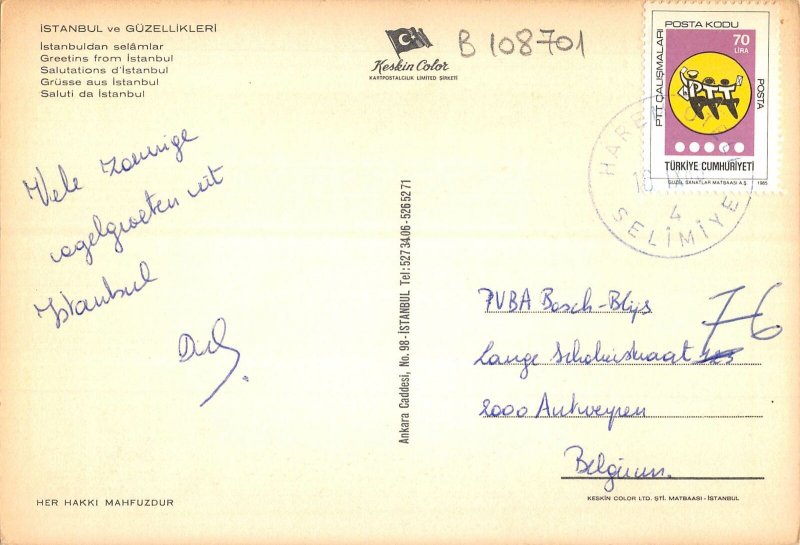 İSTANBUL ve GÜZELLİKLERİ
İstanbuldan selâmlar
Greetins from İstanbul
Salutations d'İstanbul
Grüsse aus İstanbul
Saluti da İstanbul
Keskin Color
KARTPOSTALCILIK LIMITED ŞİRKETİ
B 108701
POSTA KODU
70
LİRA
PTT ÇALIŞMALARI
PTT
POSTA
TÜRKİYE CUMHURİYETİ
GÜZEL SANATLAR MATBAASI A.Ş. 1985
HAREM
4
SELİMİYE
Vele zonnige
vogelgroeten uit
Istanbul
Ankara Caddesi, No. 98-İSTANBUL Tel: 527 34 06 - 526 52 71
PVBA Bosch-Blijs
Lange 76
2000 Antwerpen
Belgium.
HER HAKKI MAHFUZDUR
KESKİN COLOR LTD. ŞTİ. MATBAASI-İSTANBUL